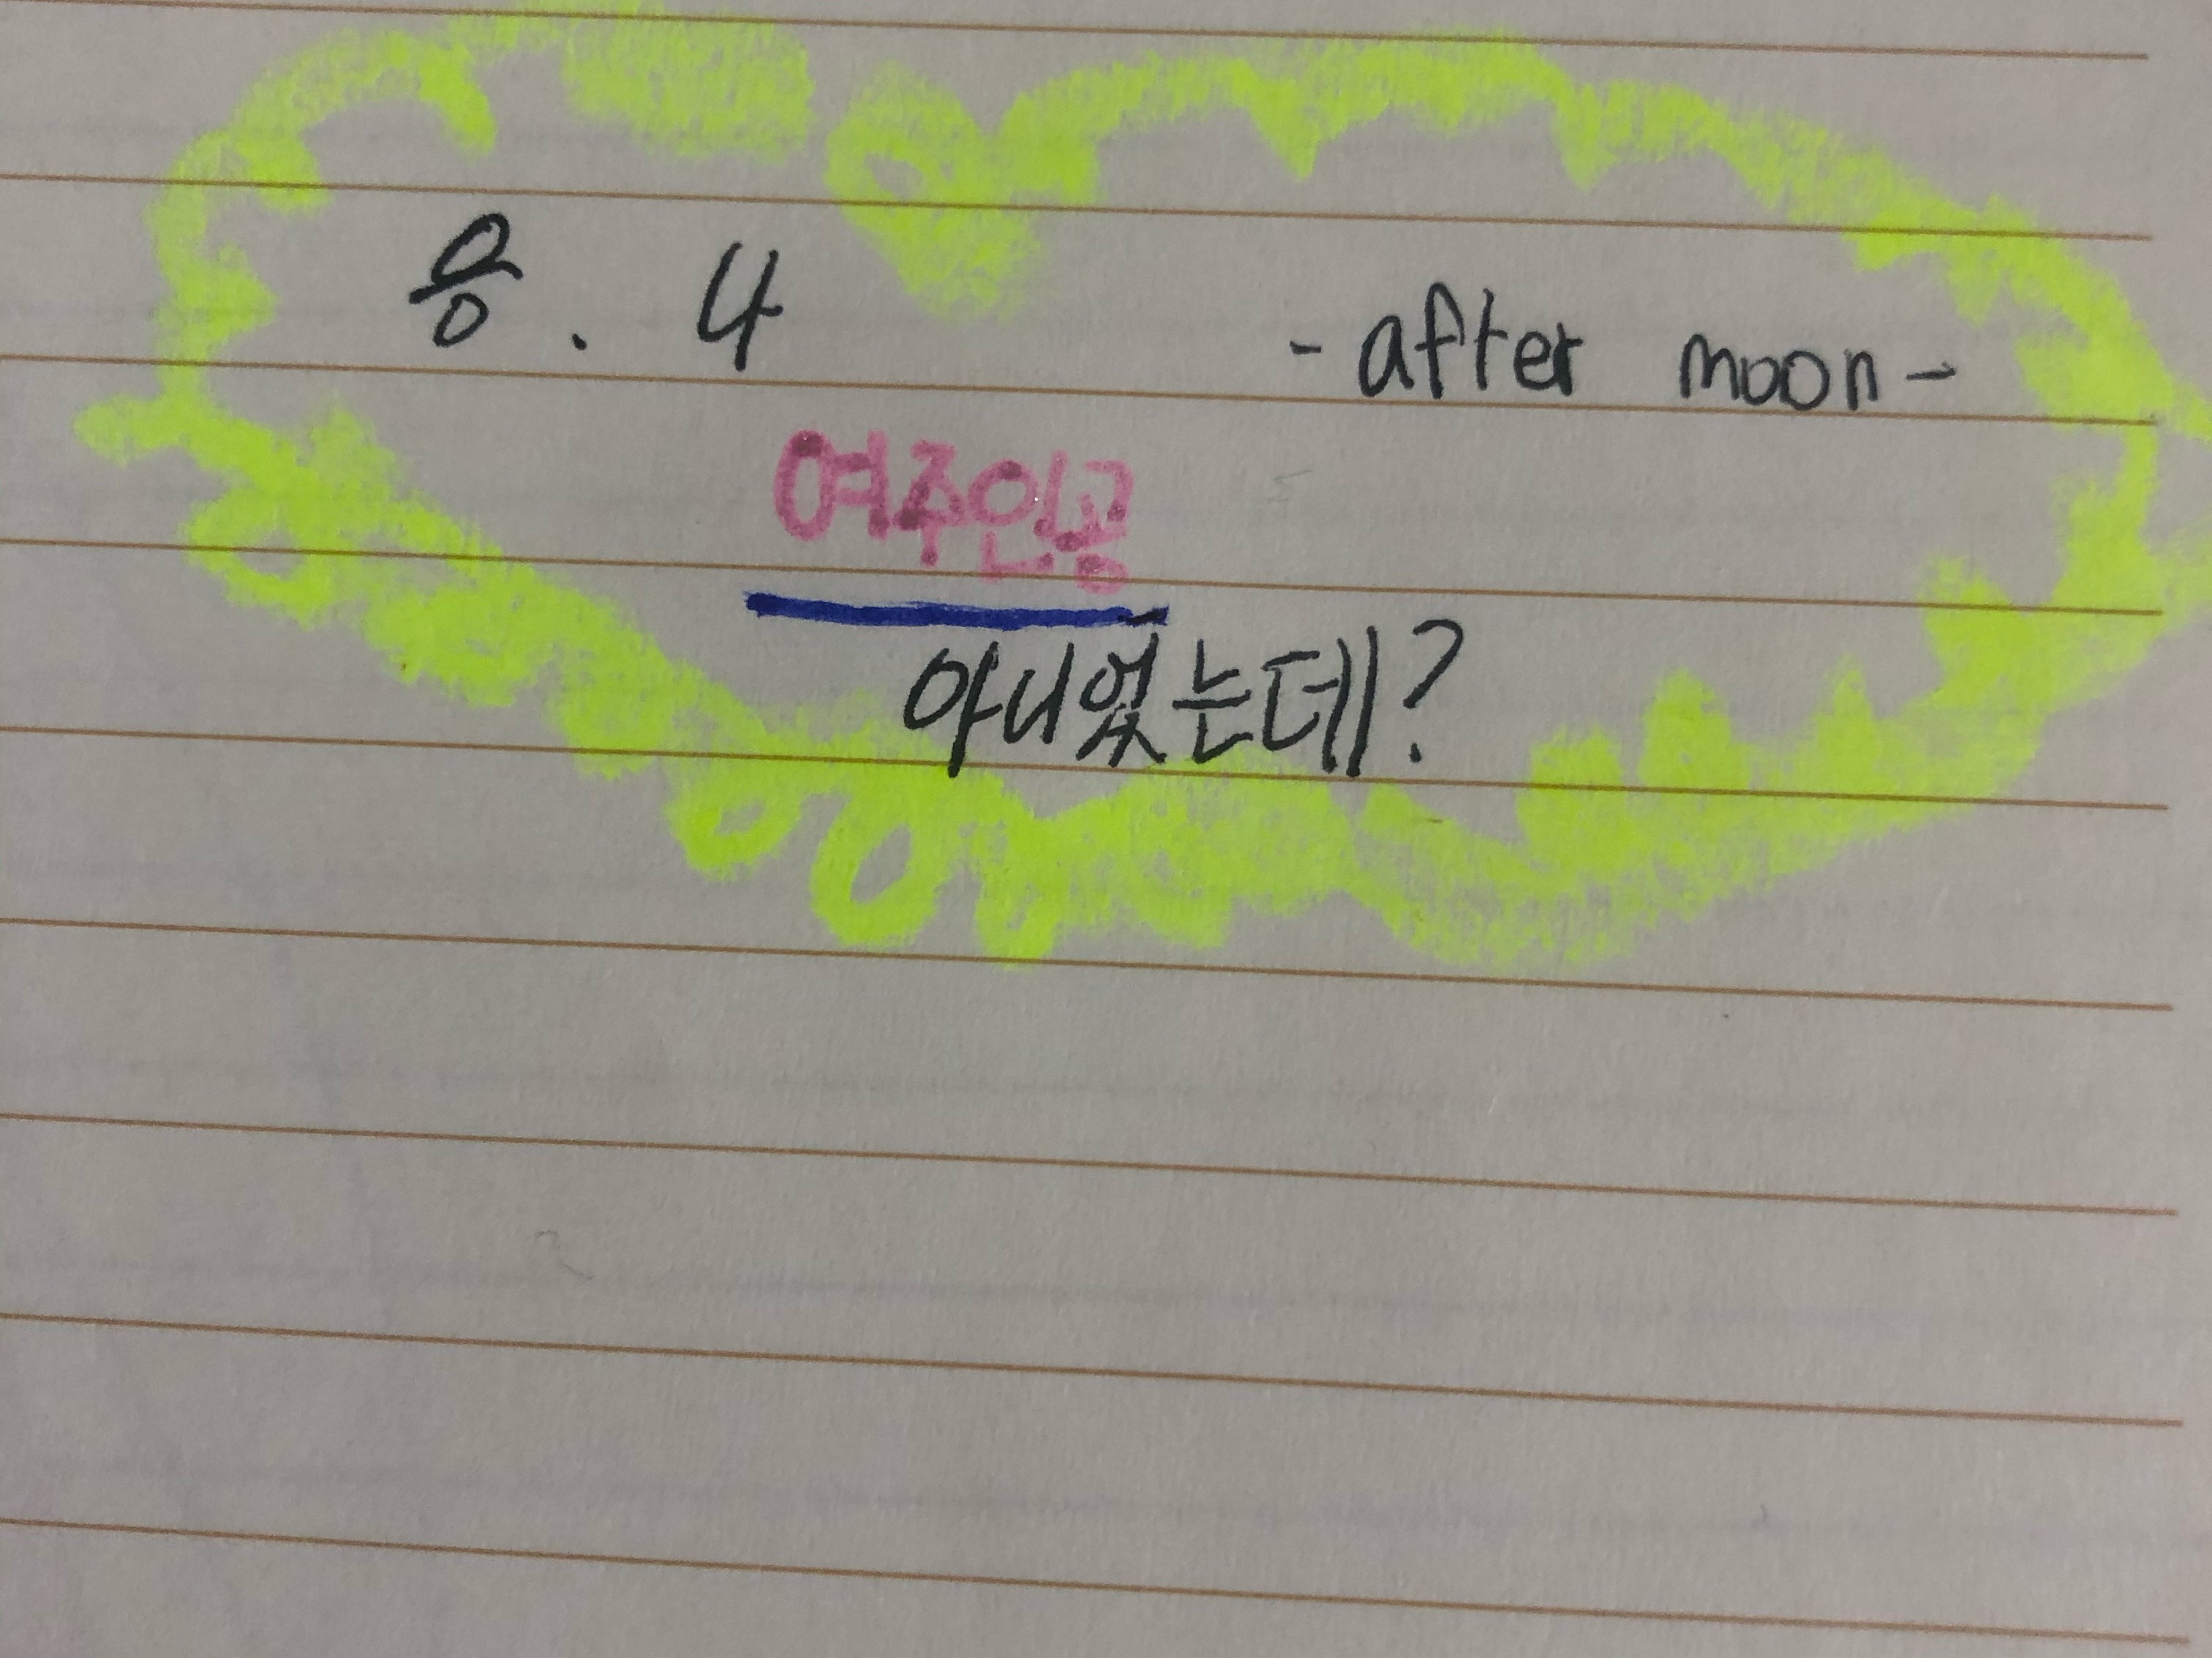 응. 나
-after moon-
여주인공
아니었는데?